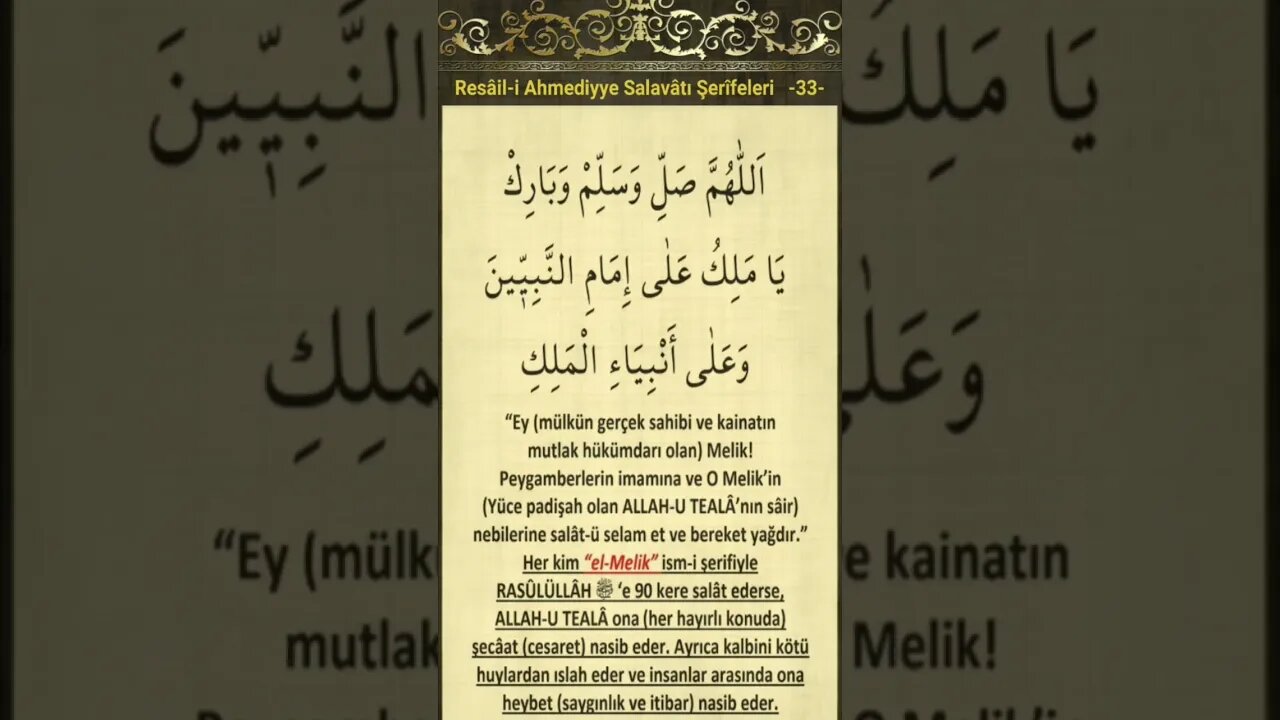 Resâil-i Ahmediyye Salavâtı Şerîfeleri -33-
اَللّٰهُمَّ صَلِّ وَسَلِّمْ وَبَارِكْ
يَا مَلِكُ عَلٰى إِمَامِ النَّبِيّ۪ينَ
وَعَلٰى أَنْبِيَاءِ الْمَلِكِ
“Ey (mülkün gerçek sahibi ve kainatın
mutlak hükümdarı olan) Melik!
Peygamberlerin imamına ve O Melik’in
(Yüce padişah olan ALLAH-U TEALÂ’nın sâir)
nebilerine salât-ü selam et ve bereket yağdır.”
Her kim “el-Melik” ism-i şerifiyle
RASÛLÜLLÂH ﷺ ‘e 90 kere salât ederse,
ALLAH-U TEALÂ ona (her hayırlı konuda)
şecâat (cesaret) nasib eder. Ayrıca kalbini kötü
huylardan ıslah eder ve insanlar arasında ona
heybet (saygınlık ve itibar) nasib eder.